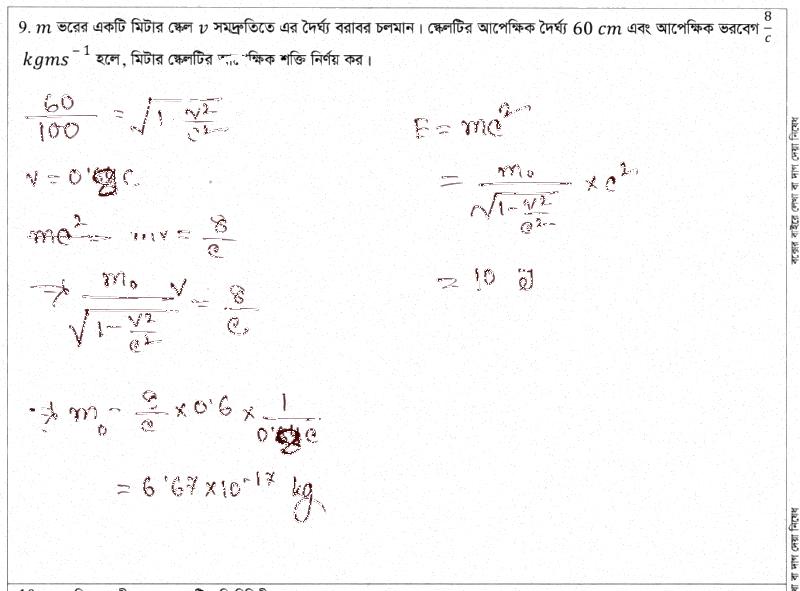 9. m ভরের একটি মিটার স্কেল v সমদ্রুতিতে এর দৈর্ঘ্য বরাবর চলমান। স্কেলটির আপেক্ষিক দৈর্ঘ্য 60 cm এবং আপেক্ষিক ভরবেগ 8/c
kgms⁻¹ হলে, মিটার স্কেলটির শক্তি নির্ণয় কর।
60/100 = √(1 - v²/c²)
v = 0.8 c
mc² mv = 8/c
⇒ m₀/√(1 - v²/c²) v = 8/c
⇒ m₀ = 8/c × 0.6 × 1/0.8c
= 6.67 × 10⁻¹⁷ kg
E = mc²
= m₀/√(1 - v²/c²) × c²
= 10 J
বক্সের বাইরে লেখা বা দাগ দেয়া নিষেধ
খা বা দাগ দেয়া নিষেধ